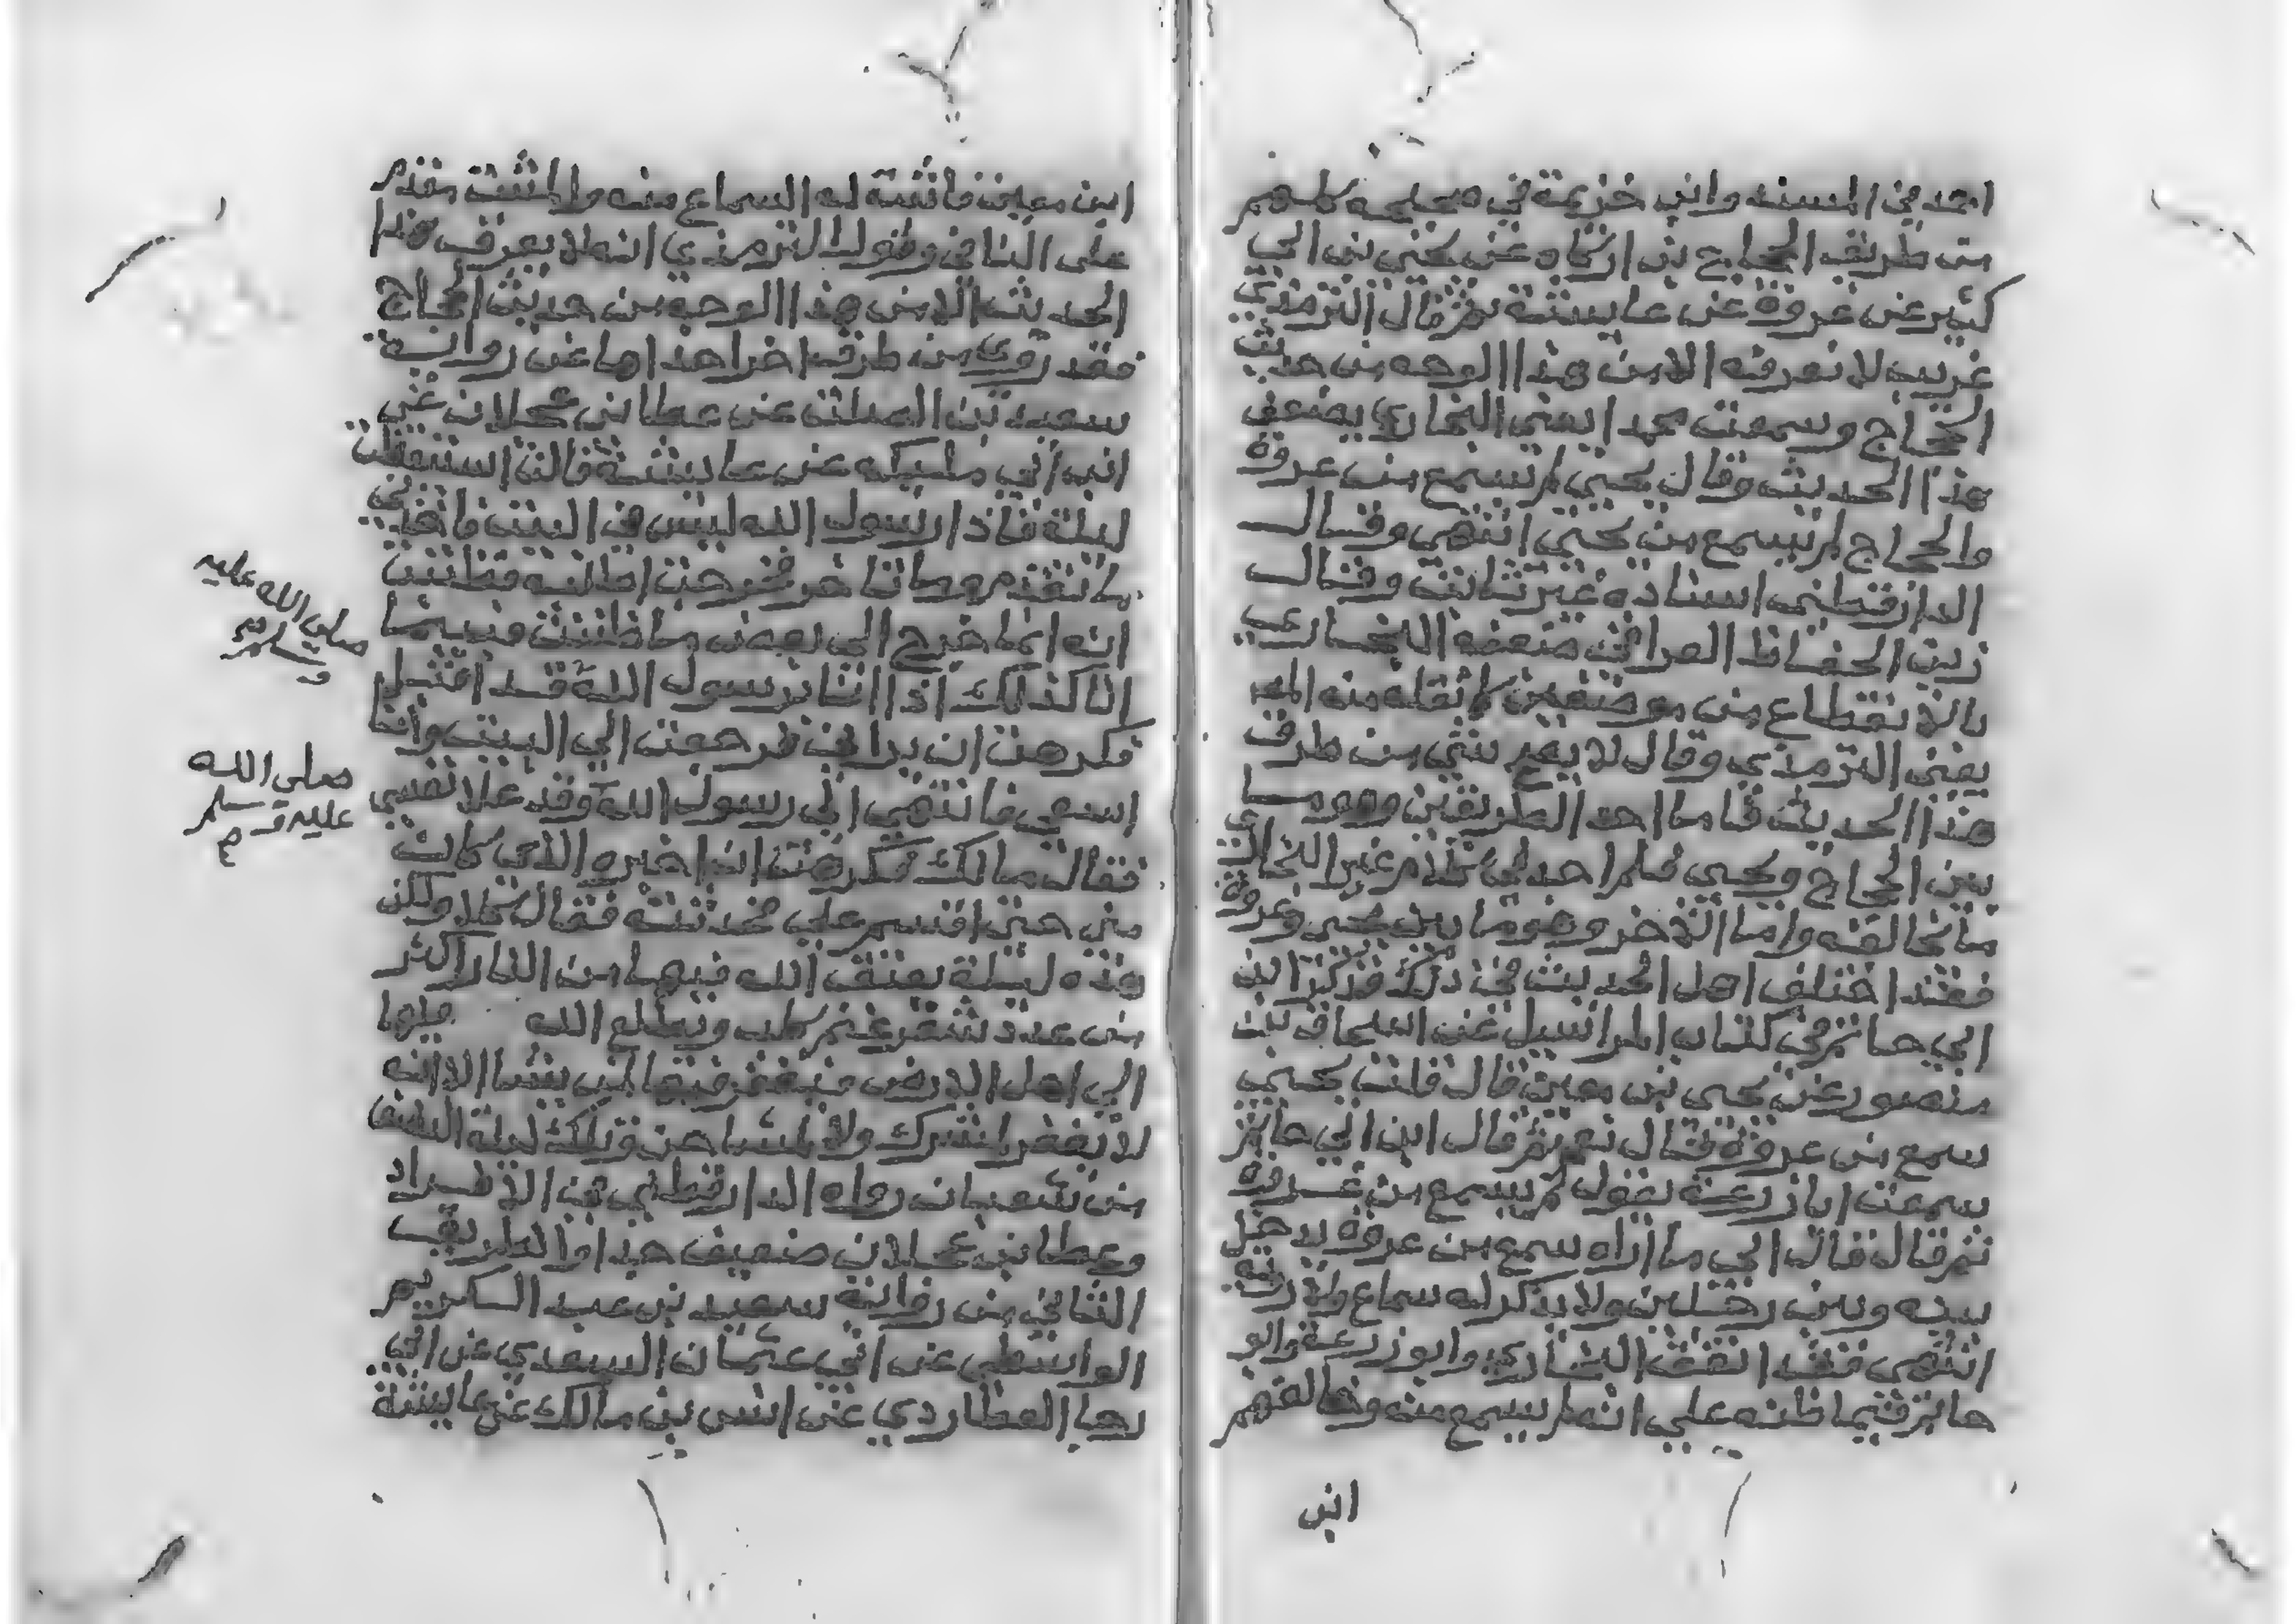 احمد في المسند وابن خزيمة في صحيحه كلهم
من طريق الحجاج بن ارطاه عن يحيى بن ابي
كثير عن عروة عن عايشة ثم قال الترمذي
غريب لا نعرفه الا من هذا الوجه من حديث
الحجاج وسمعت محمدا يعني البخاري يضعف
هذا الحديث وقال يحيى لم يسمع من عروة
والحجاج لم يسمع من يحيى انتهى وقال
الدارقطني اسناده غير ثابت وقال
زين الحفاظ العراقي ضعفه البخاري
بالانقطاع من موضعين كما نقله منه
يعني الترمذي وقال لا يصح شي من طرق
هذا الحديث فاما احد الطريقين وهو ما
بين الحجاج ويحيى فلم اجد في كلام غير البخاري
ما يخالفه واما الاخر وهو ما بين يحيى وعروة
فقد اختلف اهل الحديث في ذلك فذكر ابن
ابي حاتم في كتاب المراسيل عن اسحاق بن
منصور عن يحيى بن معين قال قلت يحيى
سمع من عروة قال نعم ثم قال ابن ابي حاتم
سمعت ابا زرعة يقول لم يسمع من عروة
ثم قال قال ابي ما اراه سمع من عروة يدخل
بينه وبين رجلين ولا يذكر له سماع ولا رؤية
انتهى فقد اتفق البخاري وابو زرعة وابو
حاتم فيما ظنه على انه لم يسمع منه وخالفهم
ابن
ابن معين فاثبت له السماع منه والمثبت مقدم
على النافي وقول الترمذي انه لا يعرف هذا
الحديث الا من هذا الوجه من حديث الحجاج
فقد روي من طرق اخر احدها عن رواية
سعيد بن الصلت عن عطا بن عجلان عن
ابن ابي مليكه عن عايشة قالت استيقظت
ليلة فاذا رسول الله ليس في البيت فاخذني
ما تقدم وما تاخر فخرجت اطلبه فظننت
انه انما خرج الى بعض ما ظننت فبينما
انا كذلك اذا انا برسول الله قد اقبل
فكرهت ان يراني فرجعت الى البيت وانا
اسعى فانتهى الي رسول الله وقد علا نفسي
فقال مالك فكرهت ان اخبره الذي كان
مني حتى اقسم علي فحدثته فقال كلا ولكن
هذه ليلة يعتق الله فيها من النار اكثر
من عدد شعر غنم كلب ويطلع الله فيها
الى اهل الارض فيغفر فيها لمن يشا الا انه
لا يغفر لمشرك ولا لمشاحن وتلك ليلة النصف
من شعبان رواه الدارقطني في الافراد
وعطا بن عجلان ضعيف جدا والطريق
الثاني من رواية سعيد بن عبد الكريم
الواسطي عن ابي عثمان السعدي عن ابي
رجا العطاردي عن انس بن مالك عن عايشة
صلى الله عليه
وسلم صح
صلى الله
عليه وسلم